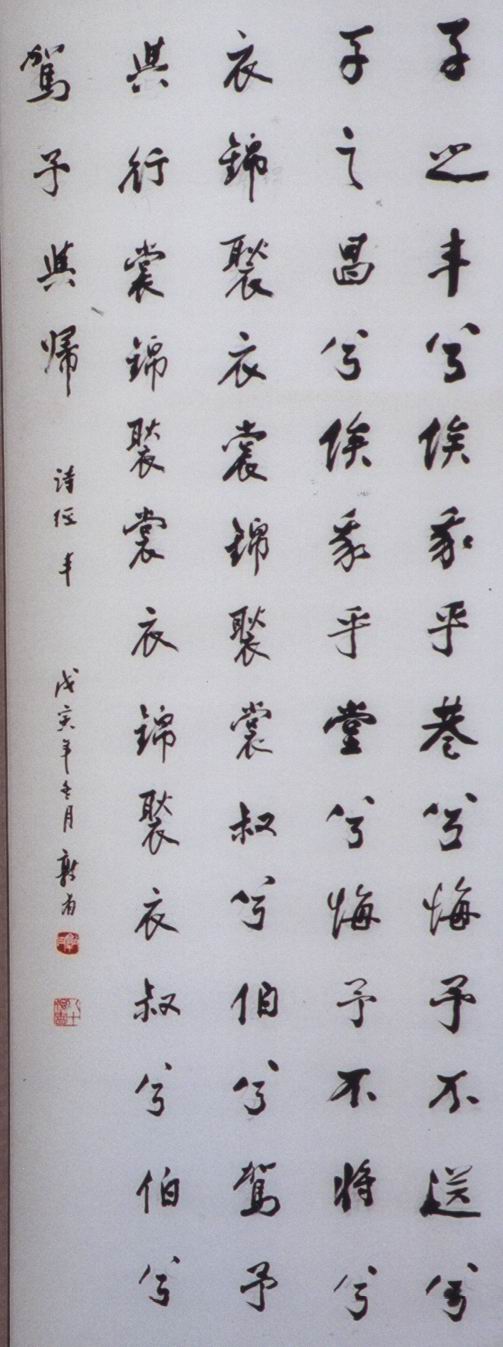 子之丰兮俟我乎巷兮悔予不送兮
子之昌兮俟我乎堂兮悔予不將兮
衣錦褧衣裳錦褧裳叔兮伯兮駕予
與行裳錦褧裳衣錦褧衣叔兮伯兮
駕予與歸 詩經 丰 戊寅年冬月